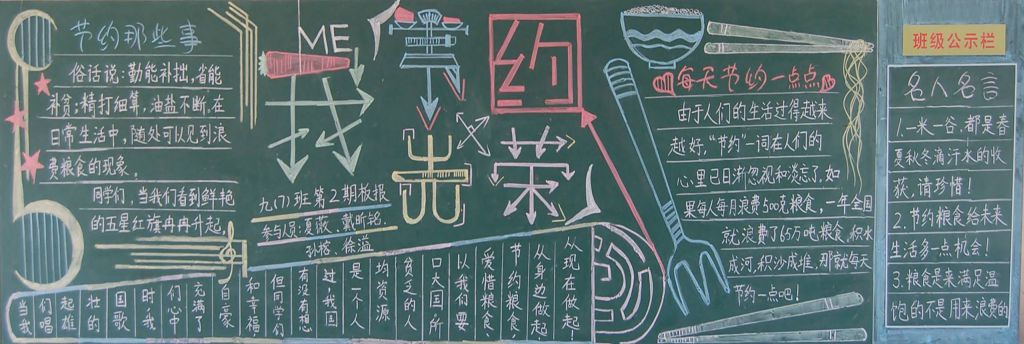 节约那些事
俗话说:勤能补拙,省能
补贫;精打细算,油盐不断,在
日常生活中,随处可以见到浪
费粮食的现象。
同学们,当我们看到鲜艳
的五星红旗冉冉升起,
当我
们唱
起雄
壮的
国歌
时,我
们心中
充满了
自豪
和幸福。
但同学们
有没有想
过,我国
是一个人
均资源
贫乏的人
口大国,所
以我们要
爱惜粮食,
节约粮食,
从身边做起,
从现在做起!
ME
我
约
光荣
九(7)班第2期板报
参与人员:夏薇、戴昕铭、
孙榕、徐溢
每天节约一点点
由于人们的生活过得越来
越好,“节约”一词在人们的
心里已日渐忽视和淡忘了,如
果每人每月浪费500克粮食,一年全国
就浪费了65万吨粮食,积水
成河,积沙成堆,那就每天
节约一点吧!
班级公示栏
名人名言
1.一米一谷,都是春
夏秋冬滴汗水的收
获,请珍惜!
2.节约粮食给未来
生活多一点机会!
3.粮食是来满足温
饱的不是用来浪费的